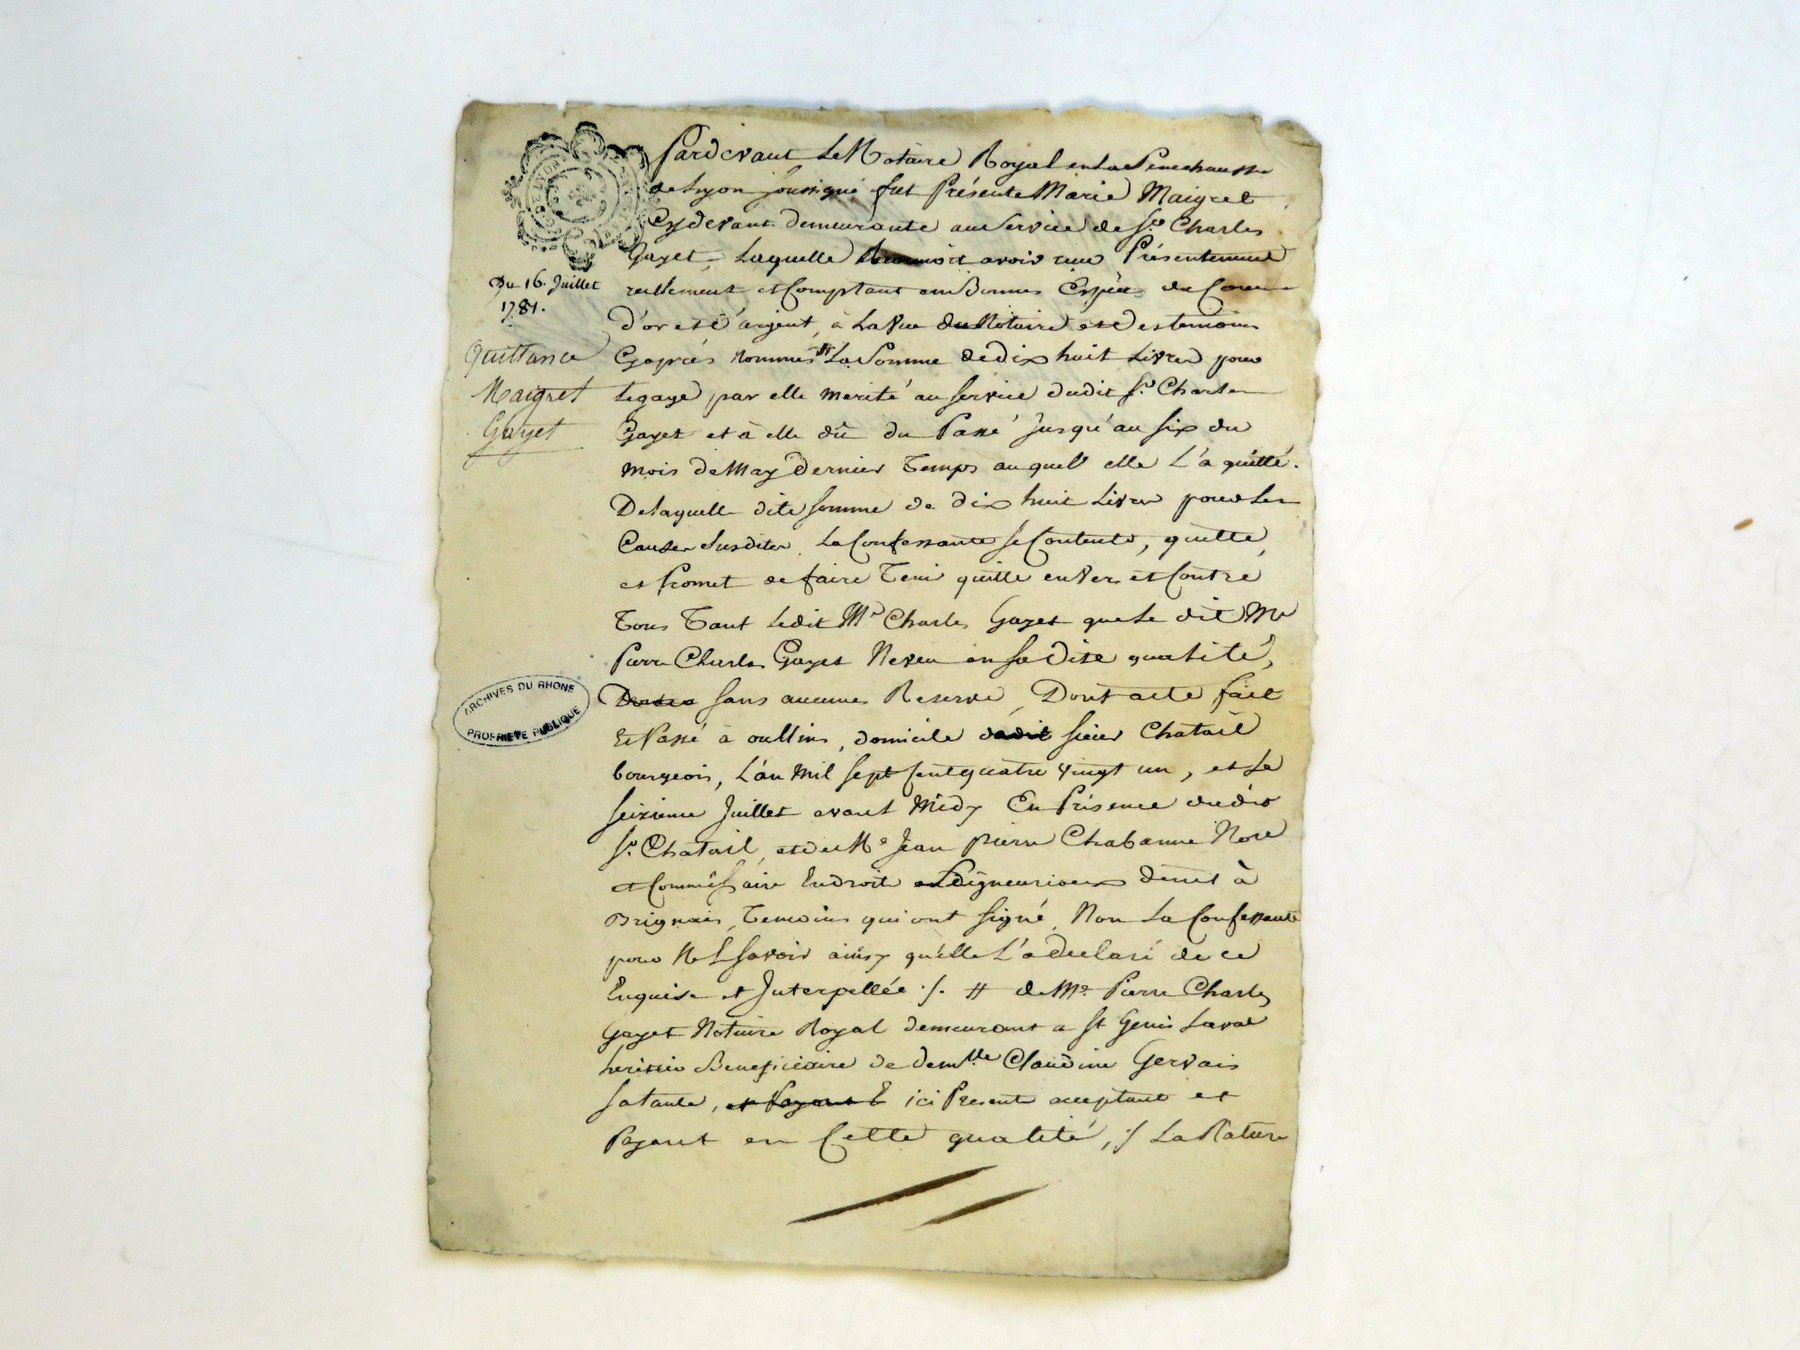 Pardevant Le Notaire Royal en la Senechaussee
de Lyon soussigné fut Présente Marie Maigret
Cydevant demeurante au service de Sr. Charles
Gayet, Laquelle avoir reçu Présentement
reellement et Comptant en Bonnes Espèces de Cours
Du 16. Juillet
1781.
d'or et d'argent, à La Vue du Notaire et des temoins
Quittance
Maigret
Gayet
Cyaprès nommés # La Somme de dix huit Livres pour
Le gage par elle merité au service dudit Sr. Charles
Gayet et à elle dû du Passé jusqu'au six du
mois de May dernier Temps auquel elle L'a quitté.
De laquelle dite somme de dix huit Livres pour Les
Causes Susdites. La Confessante se Contente, quitte,
et Promet de faire Tenir quitte envers et Contre
Tous Tant Ledit Mr. Charles Gayet que Le dit Me
Pierre Charles Gayet Neveu en sa dite qualité,
sans aucunes Reserve, Dont acte fait
Et Passé à oullins, domicile dudit sieur Chatail
bourgeois, L'an Mil sept cent quatre vingt un, et Le
seizieme Juillet avant Midy En Présence dudit
Sr. Chatail, et de Me Jean Pierre Chabanne Nore
et Commissaire En droits Seigneuriaux demt à
Brignais, Temoins qui ont signé, Non La Confessante
pour Ne Savoir ainsy qu'elle L'a declaré de ce
Enquise et Interpellée ./. # de Me. Pierre Charles
Gayet Notaire Royal demeurant a St Genis Laval
heritier Beneficiaire de demlle Claudine Gervais
sa tante, et Payant ici Present acceptant et
Payant en Cette qualité, ./ La Rature
ARCHIVES DU RHONE
PROPRIETE PUBLIQUE